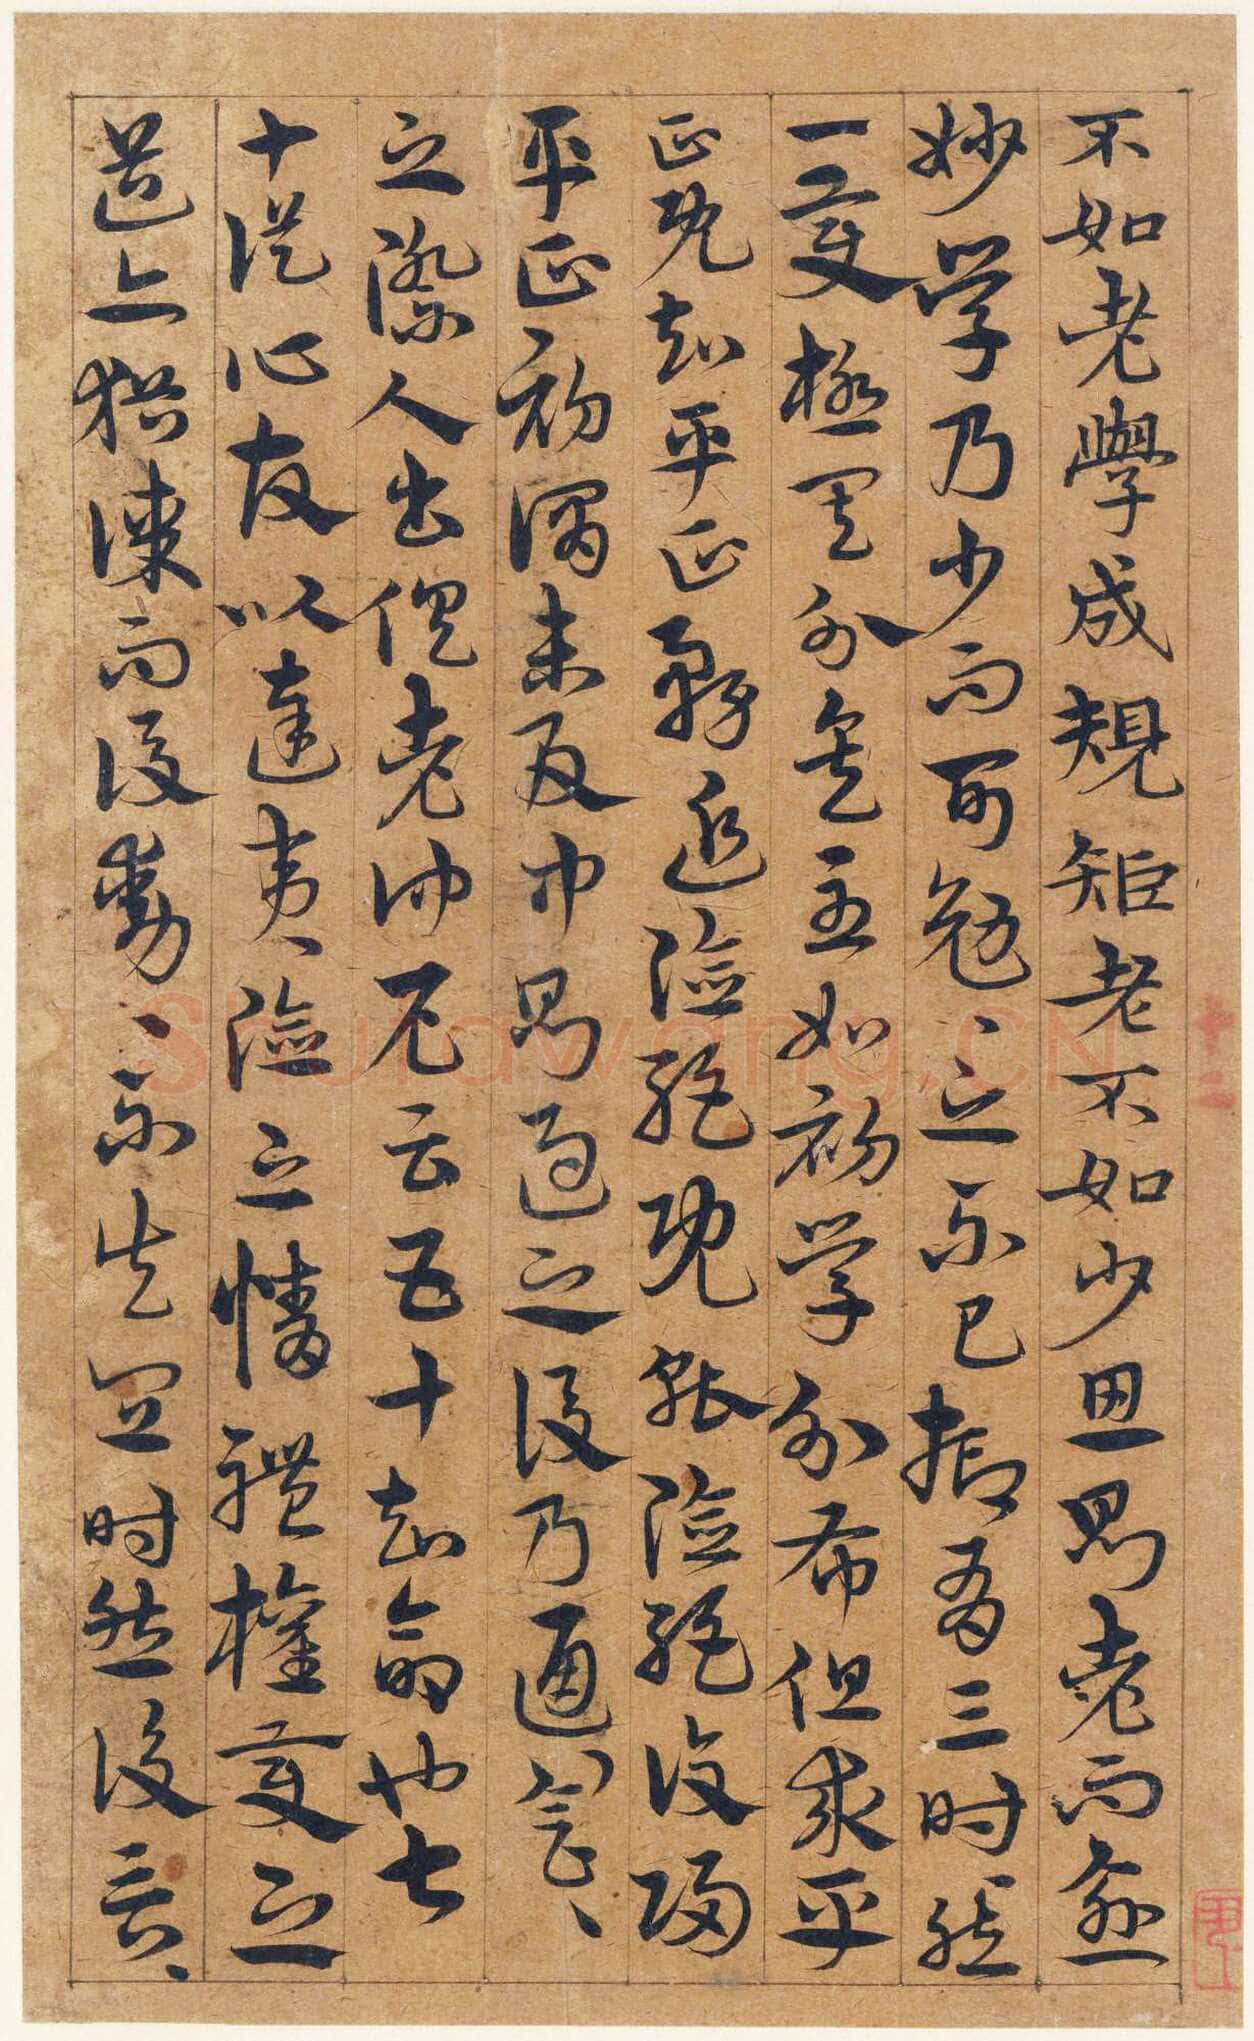 不如老學成規矩老不如少思則老而愈
妙學乃少而可勉、之不已抑有三時然
一變極其分矣至如初學分布但求平
正既知平正務追險絕既能險絕復歸
平正初謂未及中則過之後乃通會、
之際人書俱老仲尼云五十知命也七
十從心故以達夷險之情體權變之
道亦猶謀而後動、不失宜時然後言、
十二
Shufawang.CN